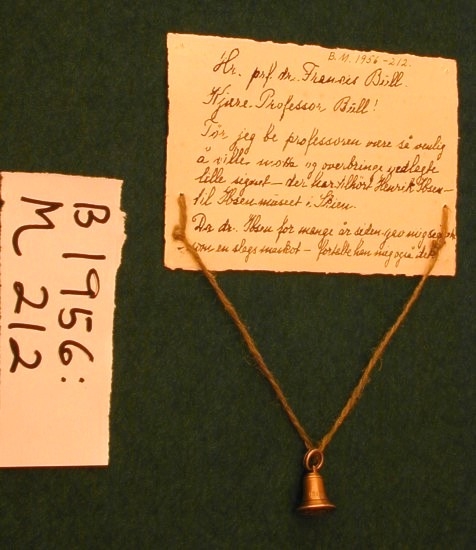 B.M. 1956-212.
Hr. prf. dr. Francis Büll.
Kjære Professor Büll!
Tør jeg be professoren være så venlig
å ville motta og overbringe vedlagte
lille signet – der har tilhørt Henrik Ibsen –
til Ibsenmuseet i Skien.
Da dr. Ibsen for mange år siden gav mig
som en slags maskot – fortalte han mig også
B 1956:
M 212